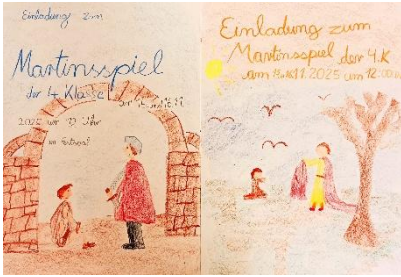 Einladung zum
Martinsspiel
der 4 Klasse
2025 um 12 Uhr
im Festsaal
Einladung zum
Martinsspiel der 4.K
am 11.2025 um 12:00